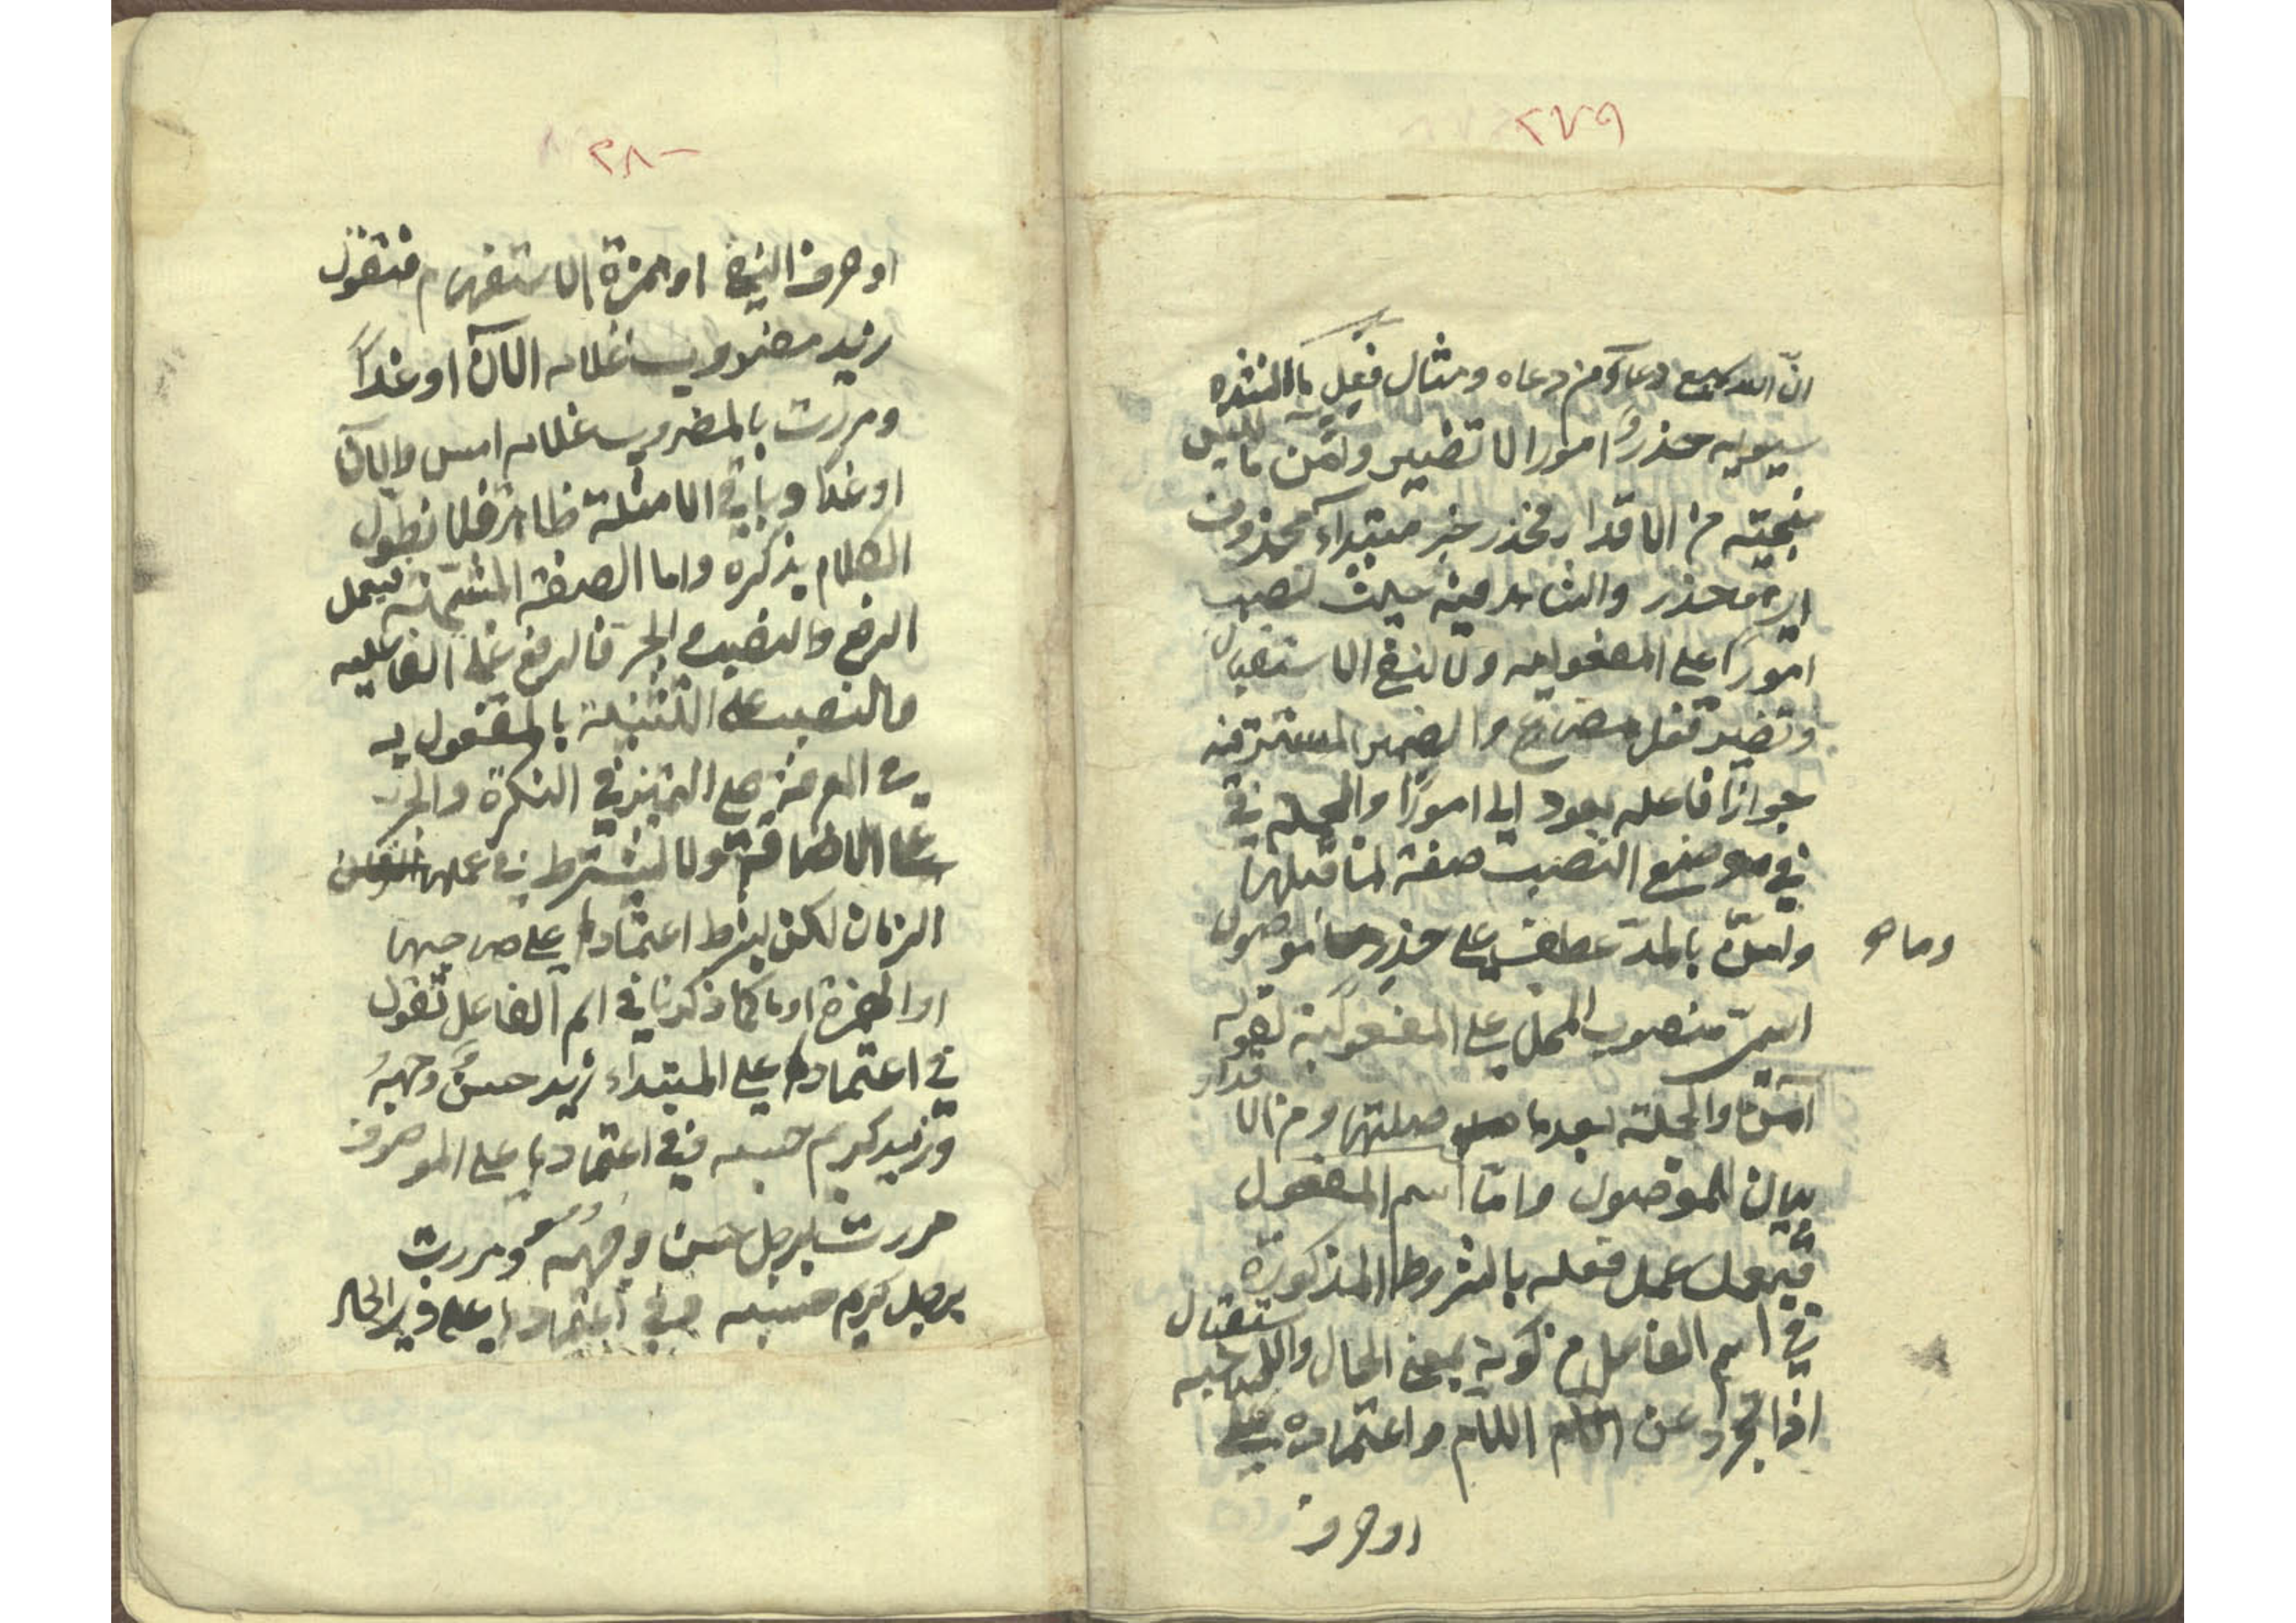 ٢٧٩
انّ الله سميع دعاؤ من دعاه ومثال فعل ما انشده
سيبويه حذرٌ امورا لا تضير وآمن ما ليس
منجيته من الاقدار فحذر خبر مبتداء محذوف
اي حذر والشاهد فيه حيث نصب
امورًا على المفعوليه ولا لنفي الاستقبال
وتضير فعل مضارع والضمير المستتر فيه
جوازًا فاعله يعود الى امورًا والجملة في
في موضع النصب صفة لما قبلها
وآمن بالمدّ عطف على حذر وما موصول
وما هو
اسمىّ منصوب المحل على المفعولية لقوله
آمن والجملة بعدها صلتها ومن الاقدار
بيان للموصول وامّا اسم المفعول
فيعمل عمل فعله بالشروط المذكورة
في اسم الفاعل من كونه بمعنى الحال والاستقبال
اذا تجرد عن اللام واعتماده على صاحبه
او حرف
٢٨٠
او حرف النفي او همزة الاستفهام فتقول
زيد مضروب غلامه الآن او غدًا
ومررت بالمضروب غلامه امس والآن
او غدا وباقي الامثلة ظاهر فلا نطول
الكلام بذكره واما الصفة المشبّهة فيعمل
الرفع والنصب والجر فالرفع على الفاعليه
والنصب على التشبيه بالمفعول به
في المعرفة وعلى التميز في النكرة والجر
على الاضافة ولا يشترط في عملها
الزمان لكن يشترط اعتمادها على صاحبها
او الهمزة او ما كما ذكرنا في اسم الفاعل تقول
في اعتمادها على المبتداء زيد حسنٌ وجهُه
وزيد كريم حسبه وفي اعتمادها على الموصوف
مررت برجل حسن وجهه ومررت
برجل كريم حسبه وفي اعتمادها على ذي الحال